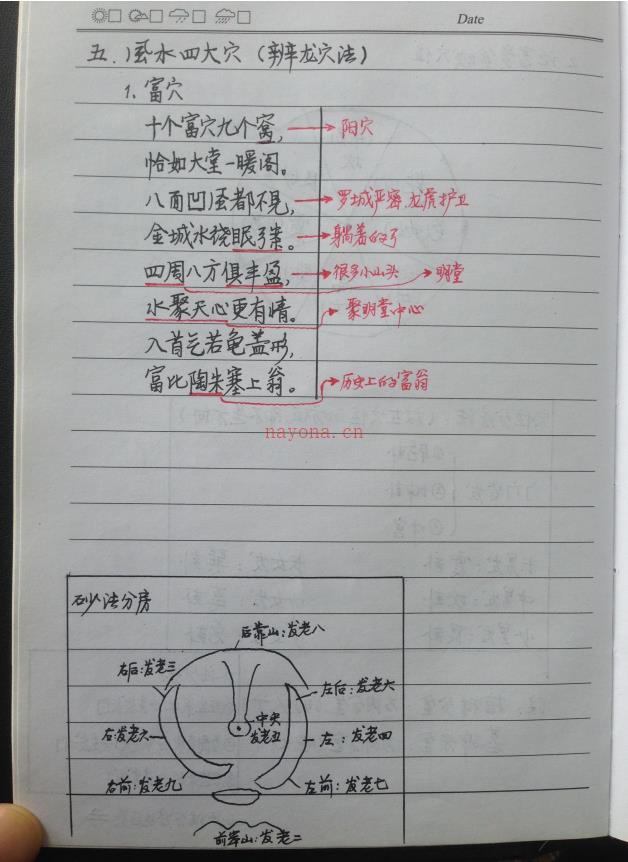 Date
五.风水四大穴（辨龙穴法）
1.富穴
十个富穴九个窝， 阳穴
恰如大堂一暖阁。
八面凹风都不见， 罗城严密.龙虎护卫
金城水绕眠弓案。 躺着的弓
四周八方俱丰盈， 很多小山头 明堂
水聚天心更有情。 聚明堂中心
入首乞若龟盖形，
富比陶朱塞上翁。 历史上的富翁
nayona.cn
砂法分房
后靠山:发老八
右后:发老三
左后:发老六
中央
发老五
右:发老六
左:发老四
右前:发老九
左前:发老七
前岸山:发老二